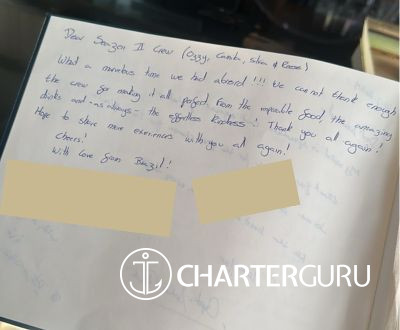 Dear Seazen II Crew (Ozzy, Camila, Silvia & Reese)
What a marvelous time we had aboard!!! We can not thank enough
the crew for making it all perfect. From the impecable food, the amazing
drinks and - as always - the effortless kindness! Thank you all again!
Hope to share more experiences with you all again!
Cheers!
With love from Brazil!
CHARTERGURU